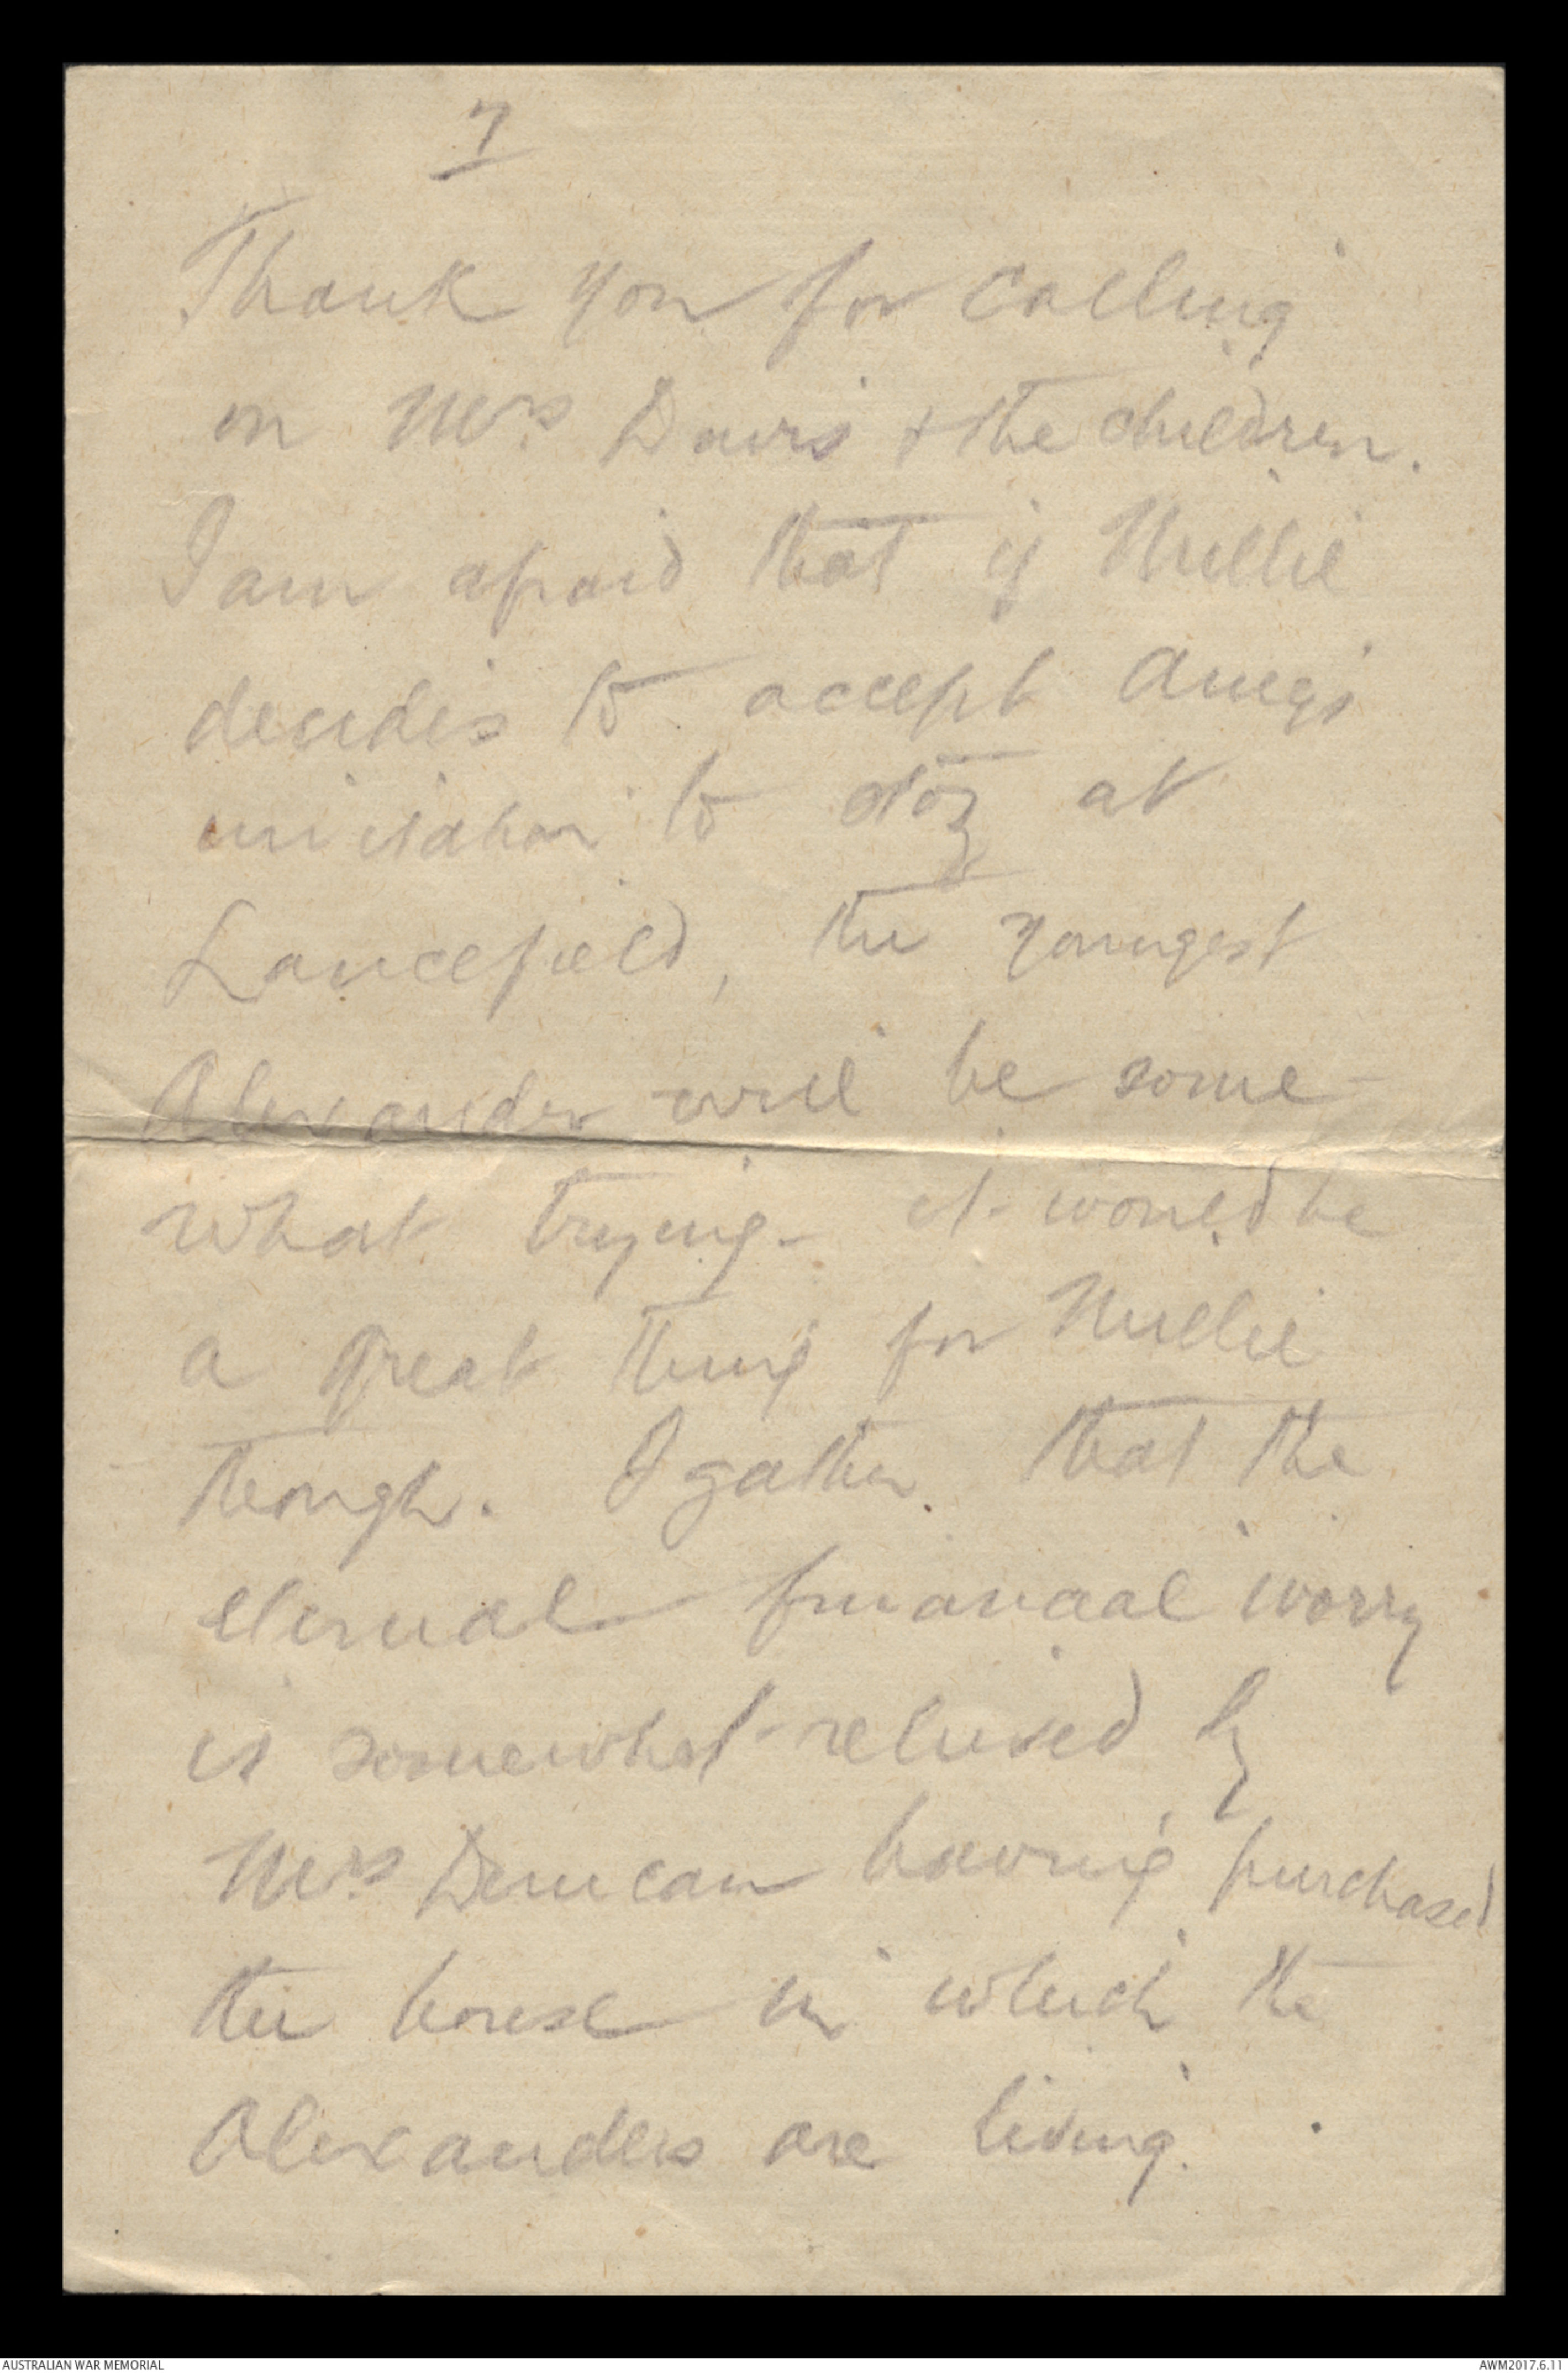 7
Thank you for calling
on Mrs Davis + the children.
I am afraid that if Nellie
decides to accept
invitation to stay at
Lancefield, the youngest
Alexander will be some-
what trying - it would be
a great thing for Nellie
though. I gather that the
eternal financial worry
is somewhat relieved by
Mrs Duncan having purchased
the house in which the
Alexanders are living.
AUSTRALIAN WAR MEMORIAL
AWM2017.6.11